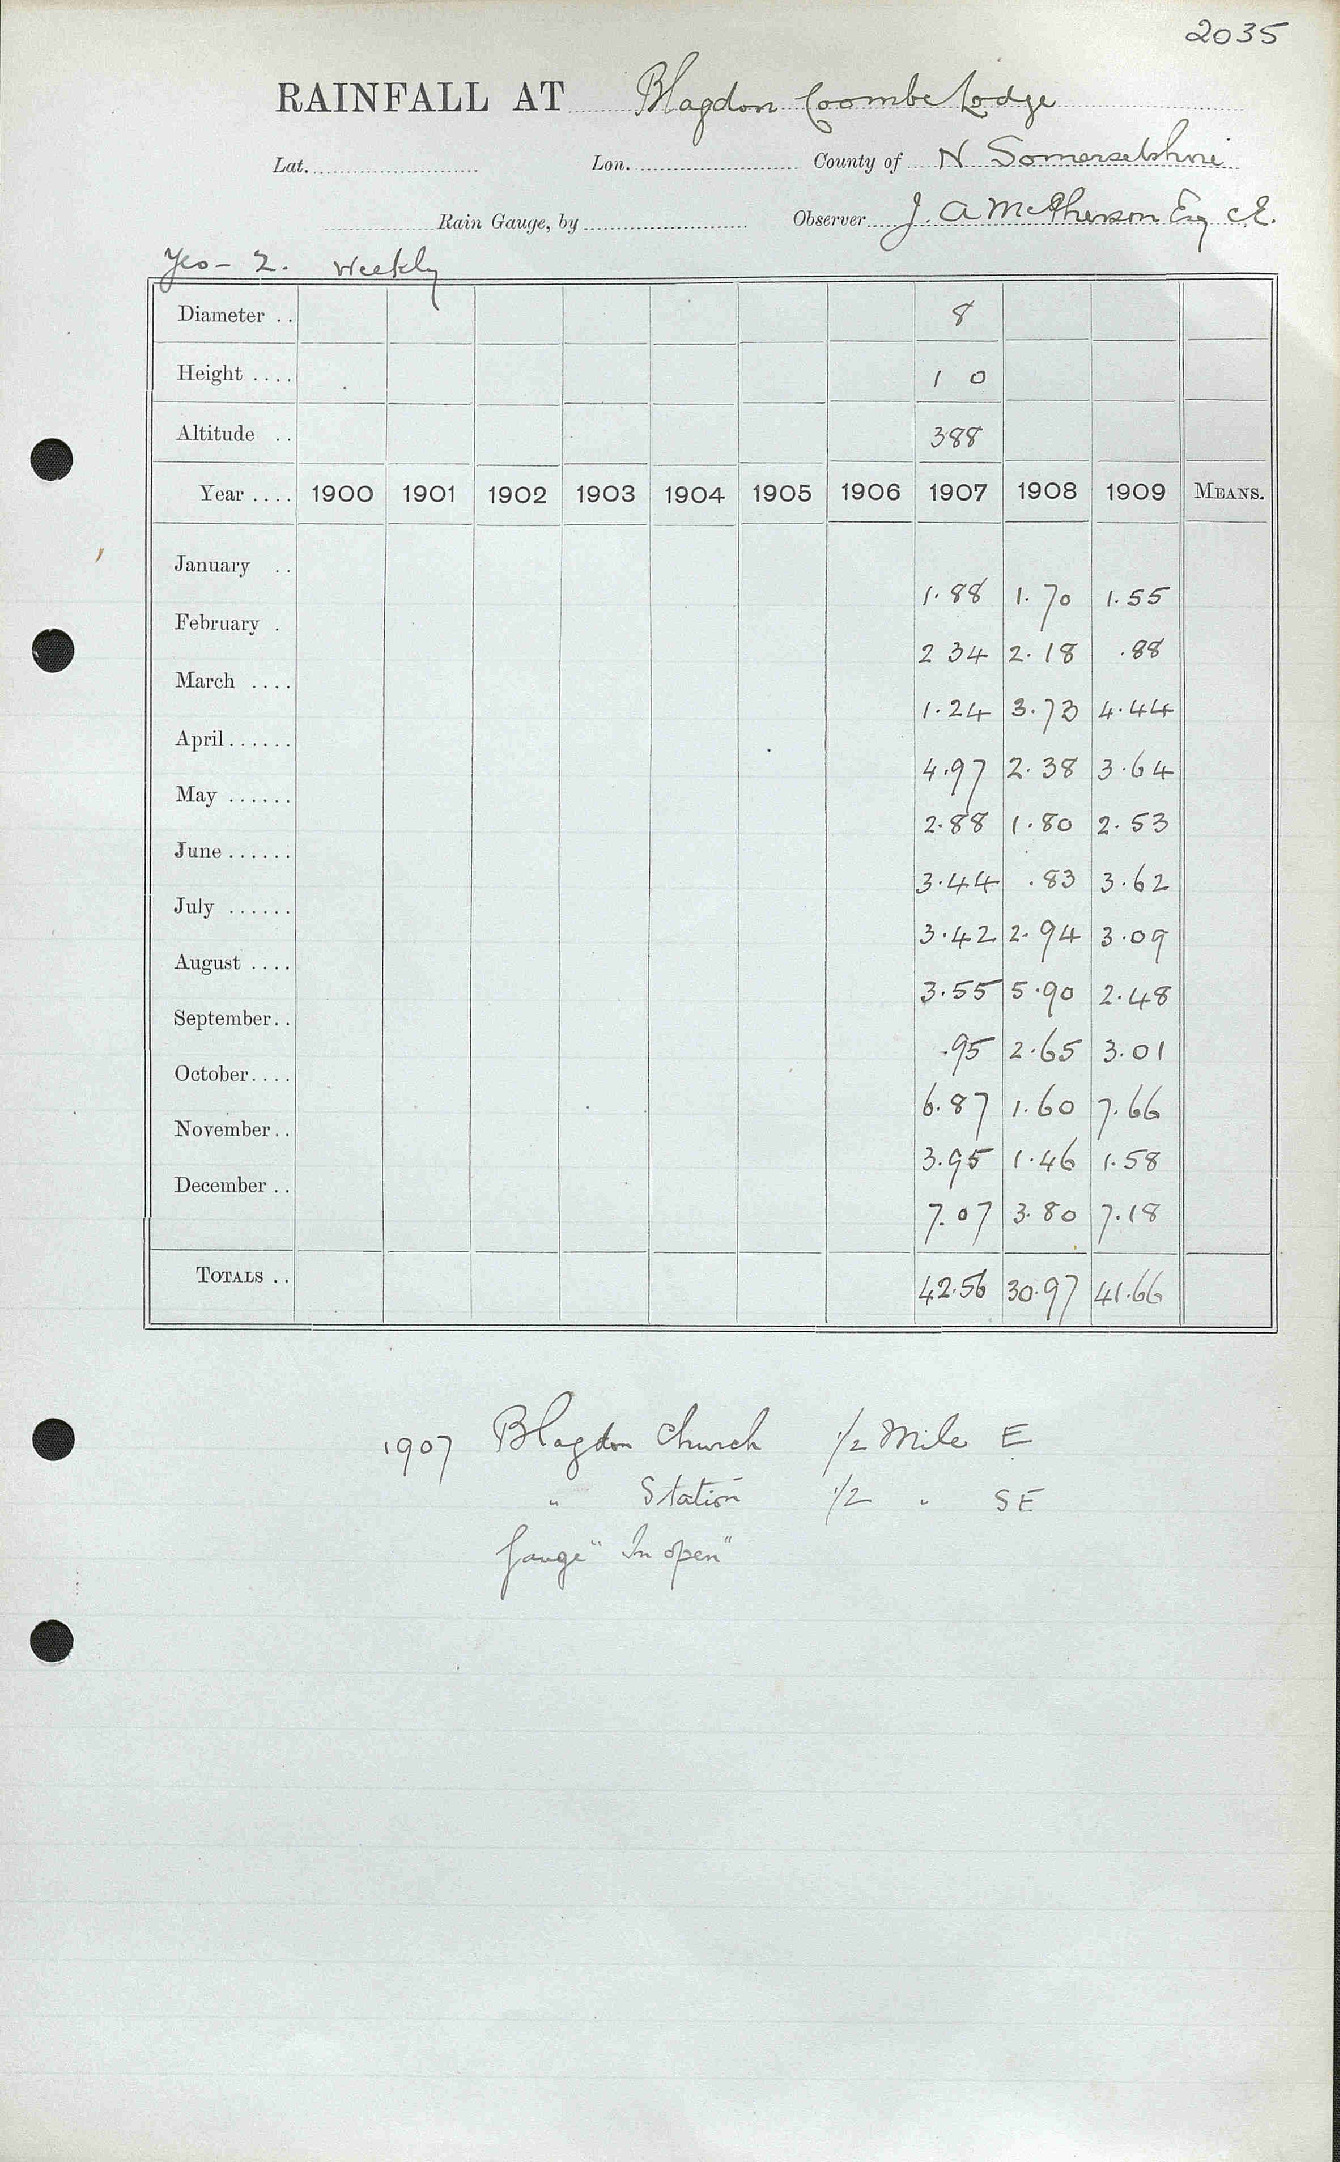 2035
RAINFALL AT Blagdon Coombe Lodge
Lat. Lon. County of N Somersetshire
Rain Gauge, by Observer J. A McPherson Esq C.E.
Yeo - 2. Weekly
Diameter .. 8
Height .... 1 0
Altitude .. 388
Year .... 1900 1901 1902 1903 1904 1905 1906 1907 1908 1909 MEANS.
January ..
1.88 1.70 1.55
February .
2 34 2.18 .88
March ....
1.24 3.73 4.44
April......
4.97 2.38 3.64
May ......
2.88 1.80 2.53
June......
3.44 .83 3.62
July ......
3.42 2.94 3.09
August ....
3.55 5.90 2.48
September..
.95 2.65 3.01
October....
6.87 1.60 7.66
November..
3.95 1.46 1.58
December ..
7.07 3.80 7.18
TOTALS .. 42.56 30.97 41.66
1907 Blagdon Church 1/2 Mile E
" Station 1/2 " SE
Gauge "In open"